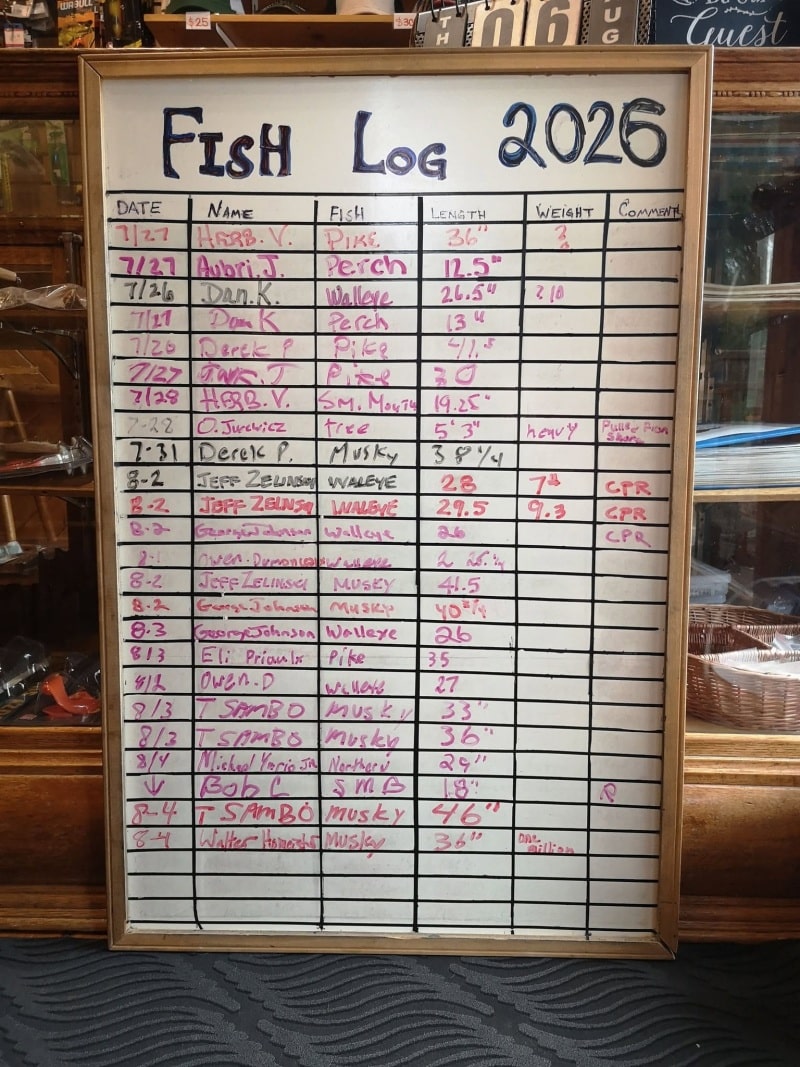 $25
$30
TH 06 AUG
Guest
FISH LOG 2026
DATE NAME FISH LENGTH WEIGHT COMMENT
7/27 HERB. V. PIKE 36" ?
7/27 Aubri. J. Perch 12.5"
7/26 Dan. K. Walleye 26.5"
7/27 Dan K Perch 13"
7/26 Derek P Pike 41.5
7/27 J Pike 30
7/28 HERB. V. SM. Mouth 19.25"
7-28 O. Jurewicz tree 5' 3" heavy Pulled From Shore
7-31 Derek P. Musky 38 1/4
8-2 JEFF ZELINSKI WALEYE 28 7# CPR
8-2 JEFF ZELINSKI WALEYE 29.5 9.3 CPR
8-2 George Johnson Walleye 26 CPR
8-1 Owen Walleye
8-2 JEFF ZELINSKI MUSKY 41.5
8-2 George Johnson MUSKY 40 3/4
8-3 George Johnson Walleye 26
8/3 Eli Prioulx Pike 35
8/2 Owen. D Walleye 27
8/3 T SAMBO Musky 33"
8/3 T SAMBO Musky 36"
8/4 Michael Jr. Northern 29"
↓ Bob C SMB 18" R
8-4 T SAMBO musky 46"
8-4 Walter Musky 36" one million